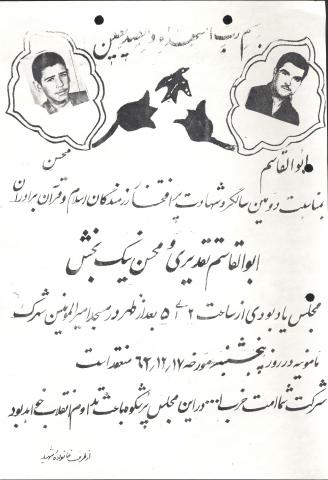 بسم رب الشهداء و الصدیقین
ابوالقاسم
محسن
بمناسبت دومین سالگرد شهادت پرافتخار رزمندگان اسلام و قرآن برادران
ابوالقاسم تقدیری و محسن نیک بخش
مجلس یادبودی از ساعت ۲ الی ۵ بعد از ظهر در مسجد امیرالمؤمنین شهرک
نامونیه در روز پنجشنبه مورخه ۶۲٫۱۲٫۱۷ منعقد است
شرکت شما امت حزب ا... در این مجلس پرشکوه باعث تداوم انقلاب خواهد بود
از طرف خانواده شهید